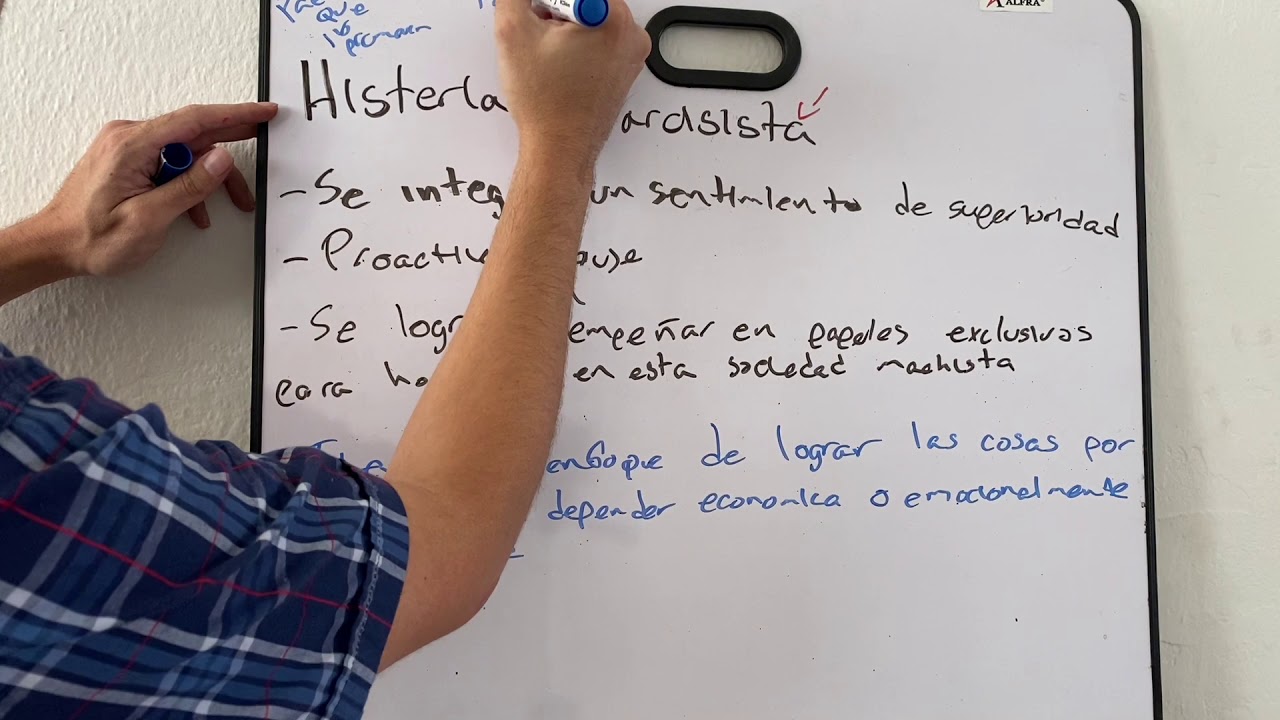 ALFRA
que
Histeria arasista
- Se integ un sentimiento de superioridad
- Proactiv
- Se logr empeñar en papeles exclusivos
para ho en esta sociedad machista
enfoque de lograr las cosas por
depender economica o emocionalmente